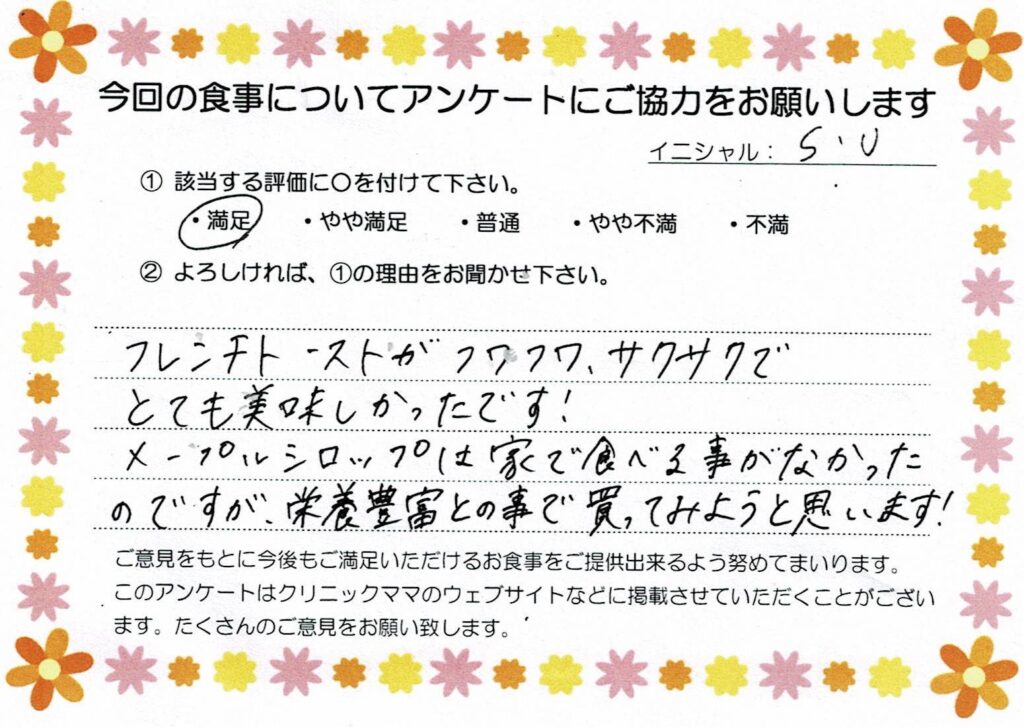 今回の食事についてアンケートにご協力をお願いします
イニシャル： S・U
① 該当する評価に〇を付けて下さい。
・満足 ・やや満足 ・普通 ・やや不満 ・不満
② よろしければ、①の理由をお聞かせ下さい。
フレンチトーストがフワフワ、サクサクで
とても美味しかったです！
メープルシロップは家で食べる事がなかった
のですが、栄養豊富との事で買ってみようと思います！
ご意見をもとに今後もご満足いただけるお食事をご提供出来るよう努めてまいります。
このアンケートはクリニックママのウェブサイトなどに掲載させていただくことがござい
ます。たくさんのご意見をお願い致します。